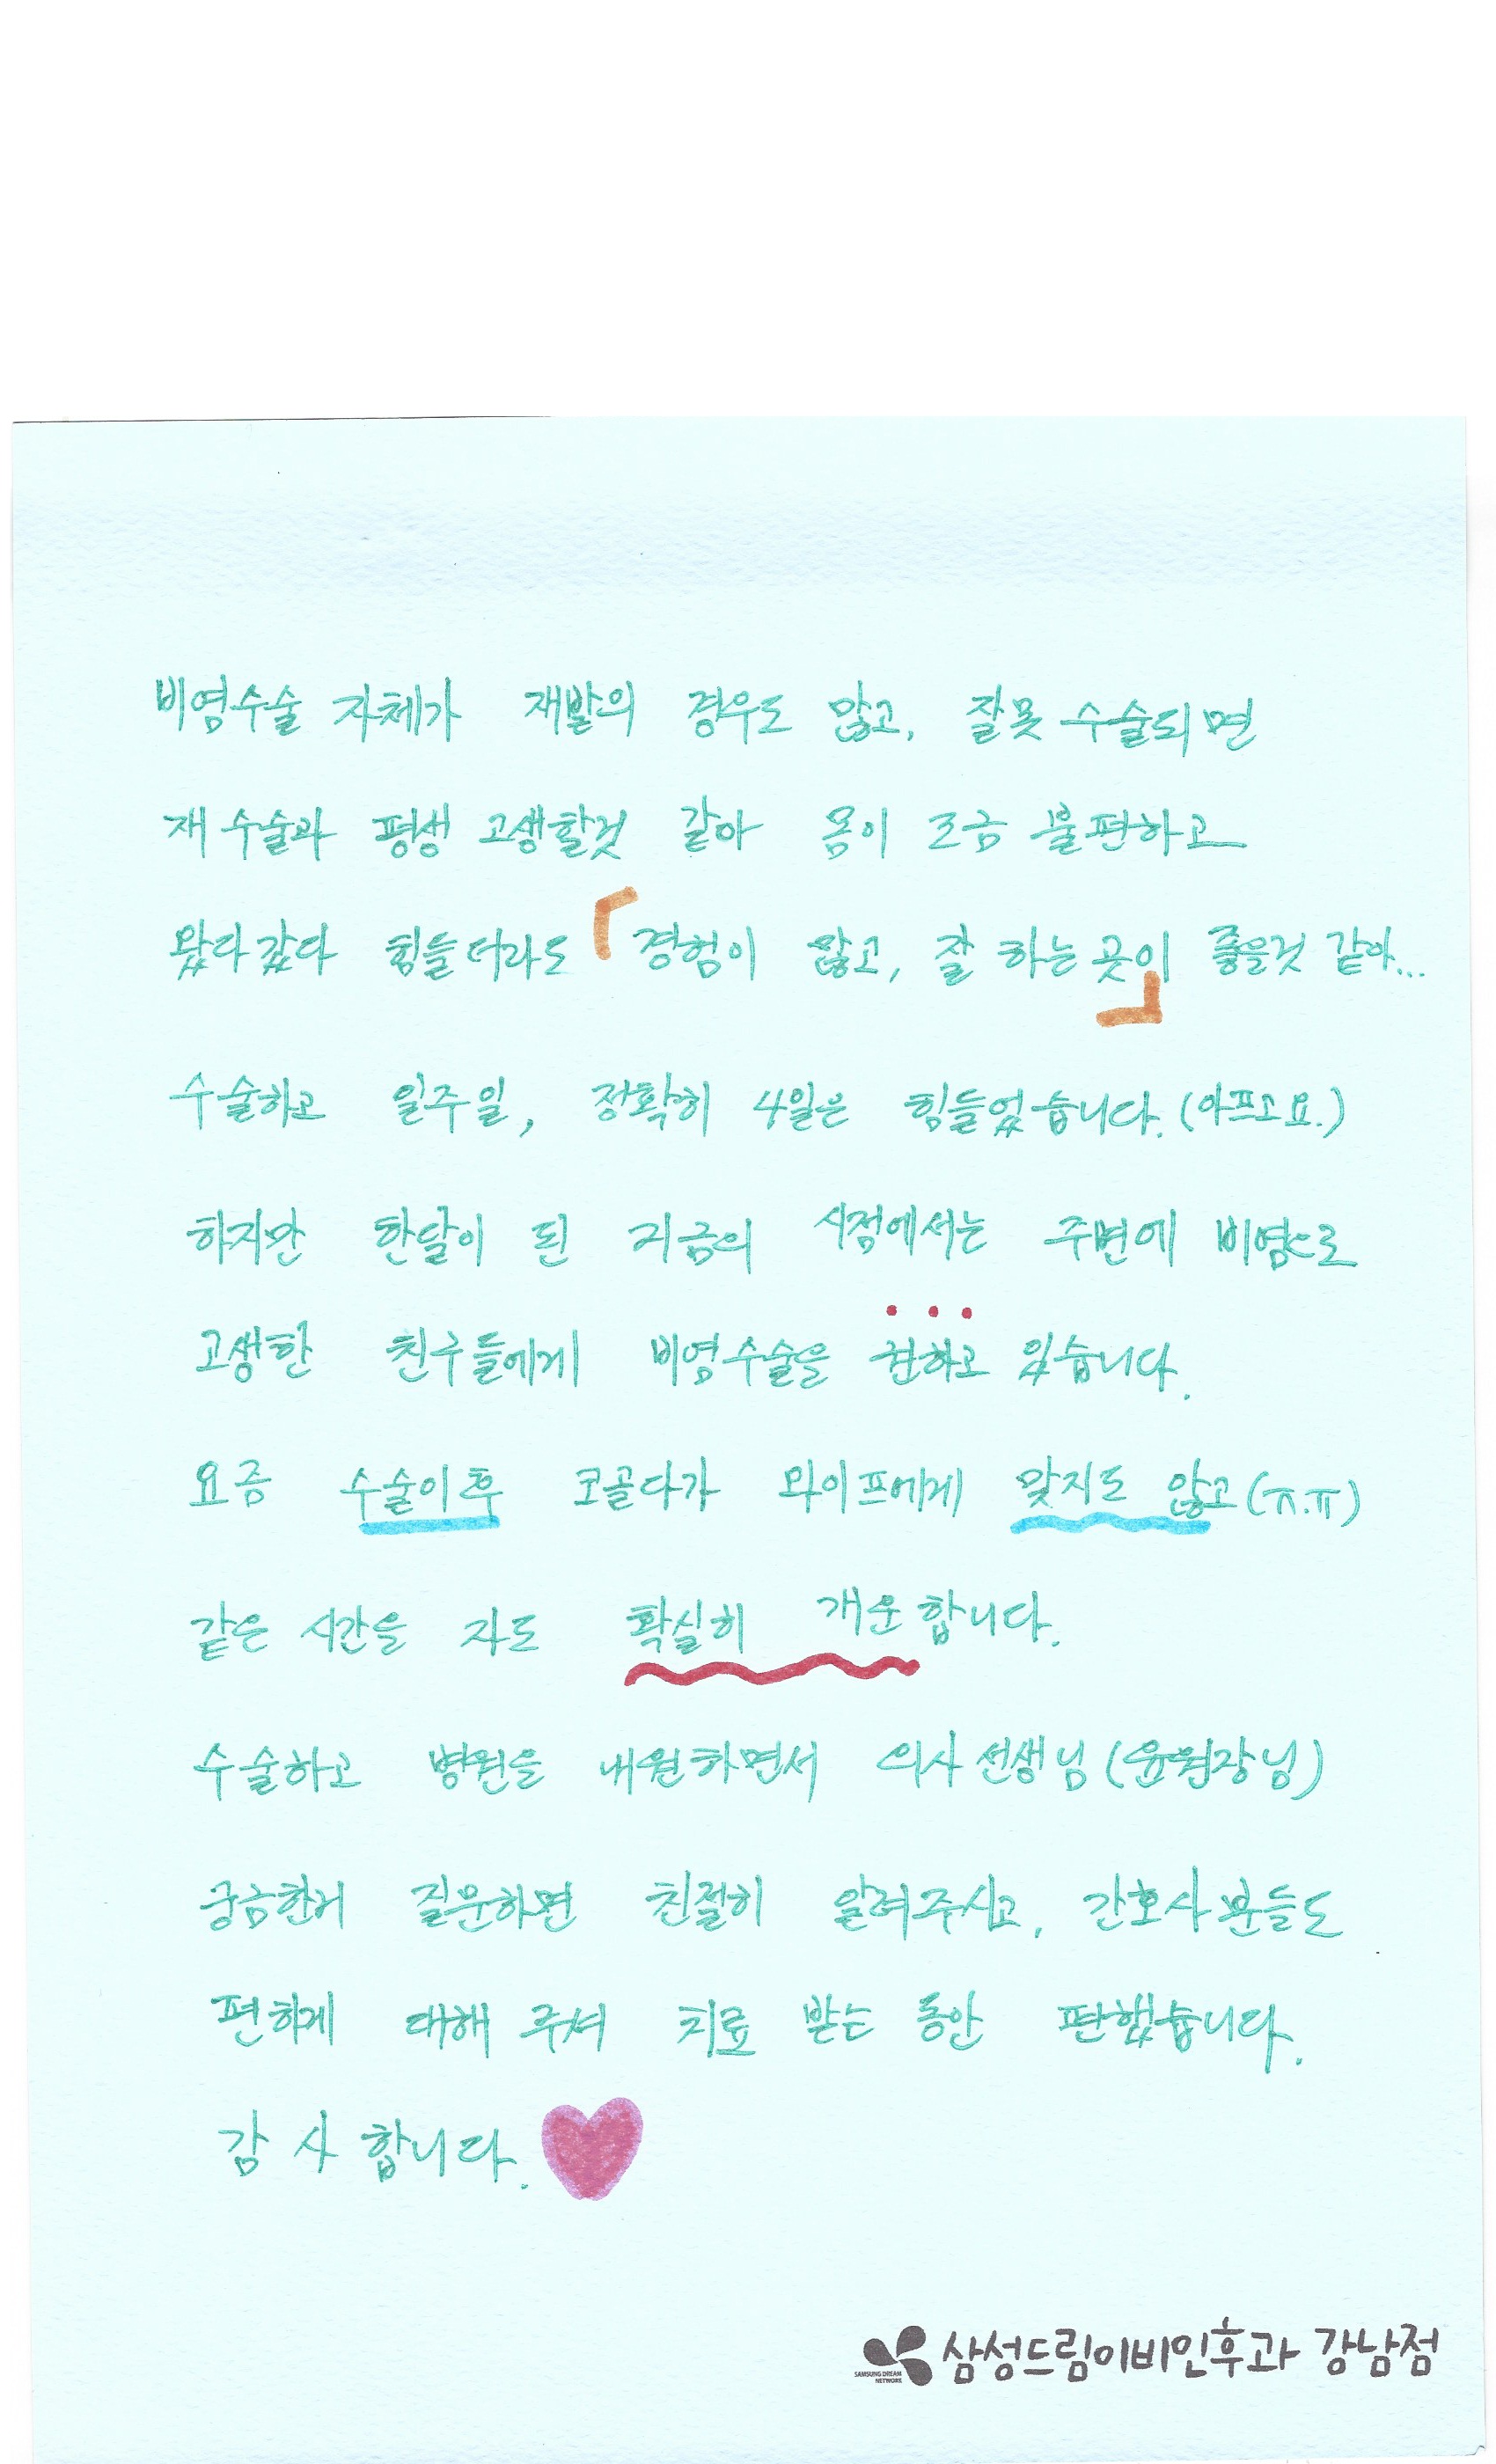 비염수술 자체가 재발의 경우도 많고, 잘못 수술되면
재수술과 평생 고생할것 같아 몸이 조금 불편하고
왔다갔다 힘들더라도 「경험이 많고, 잘 하는 곳이」 좋을것 같아...
수술하고 일주일, 정확히 4일은 힘들었습니다. (아프고요.)
하지만 한달이 된 지금의 시점에서는 주변에 비염으로
고생한 친구들에게 비염수술을 권하고 있습니다.
요즘 수술이후 코골다가 와이프에게 맞지도 않고(ㅠ.ㅠ)
같은 시간을 자도 확실히 개운합니다.
수술하고 병원을 내원하면서 의사선생님(윤원장님)
궁금한거 질문하면 친절히 알려주시고, 간호사분들도
편하게 대해 주셔 치료 받는 동안 편했습니다.
감사합니다.
SAMSUNG DREAM NETWORK 삼성드림이비인후과 강남점